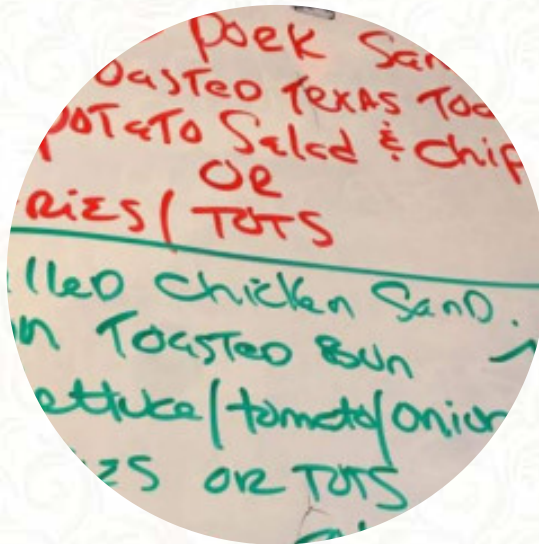 Pork San
oasted Texas Toa
potato Salad & Chip
OR
Ries / TOTS
lled Chicken Sand.
on Toasted Bun
ettuce/tomato/onion
es OR TOTS